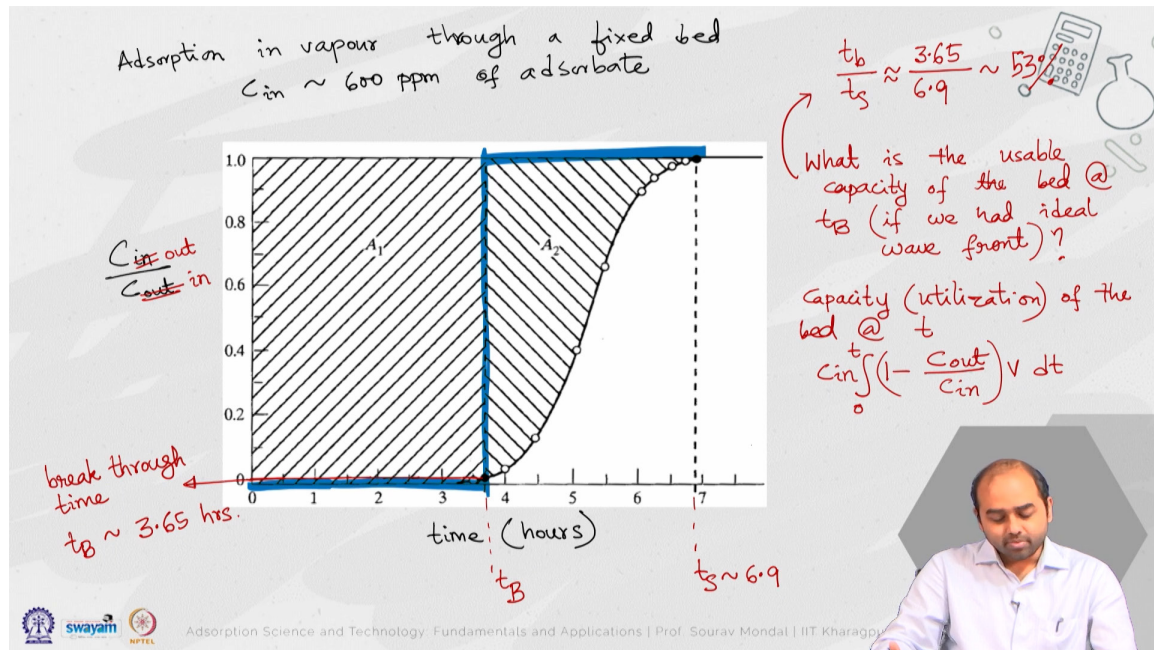 Adsorption in vapour through a fixed bed
Cin ~ 600 ppm of adsorbate
tb/ts ≈ 3.65/6.9 ~ 53%
What is the usable
capacity of the bed @
tB (if we had ideal
wave front)?
Capacity (utilization) of the
bed @ t
Cin ∫0^t (1 - Cout/Cin) v dt
Cin out
Cout in
1.0
0.8
0.6
0.4
0.2
0
A1
A2
0 1 2 3 4 5 6 7
time (hours)
break through
time
tB ~ 3.65 hrs.
tB
ts ~ 6.9
swayam
NPTEL
Adsorption Science and Technology: Fundamentals and Applications | Prof. Sourav Mondal | IIT Kharagpu